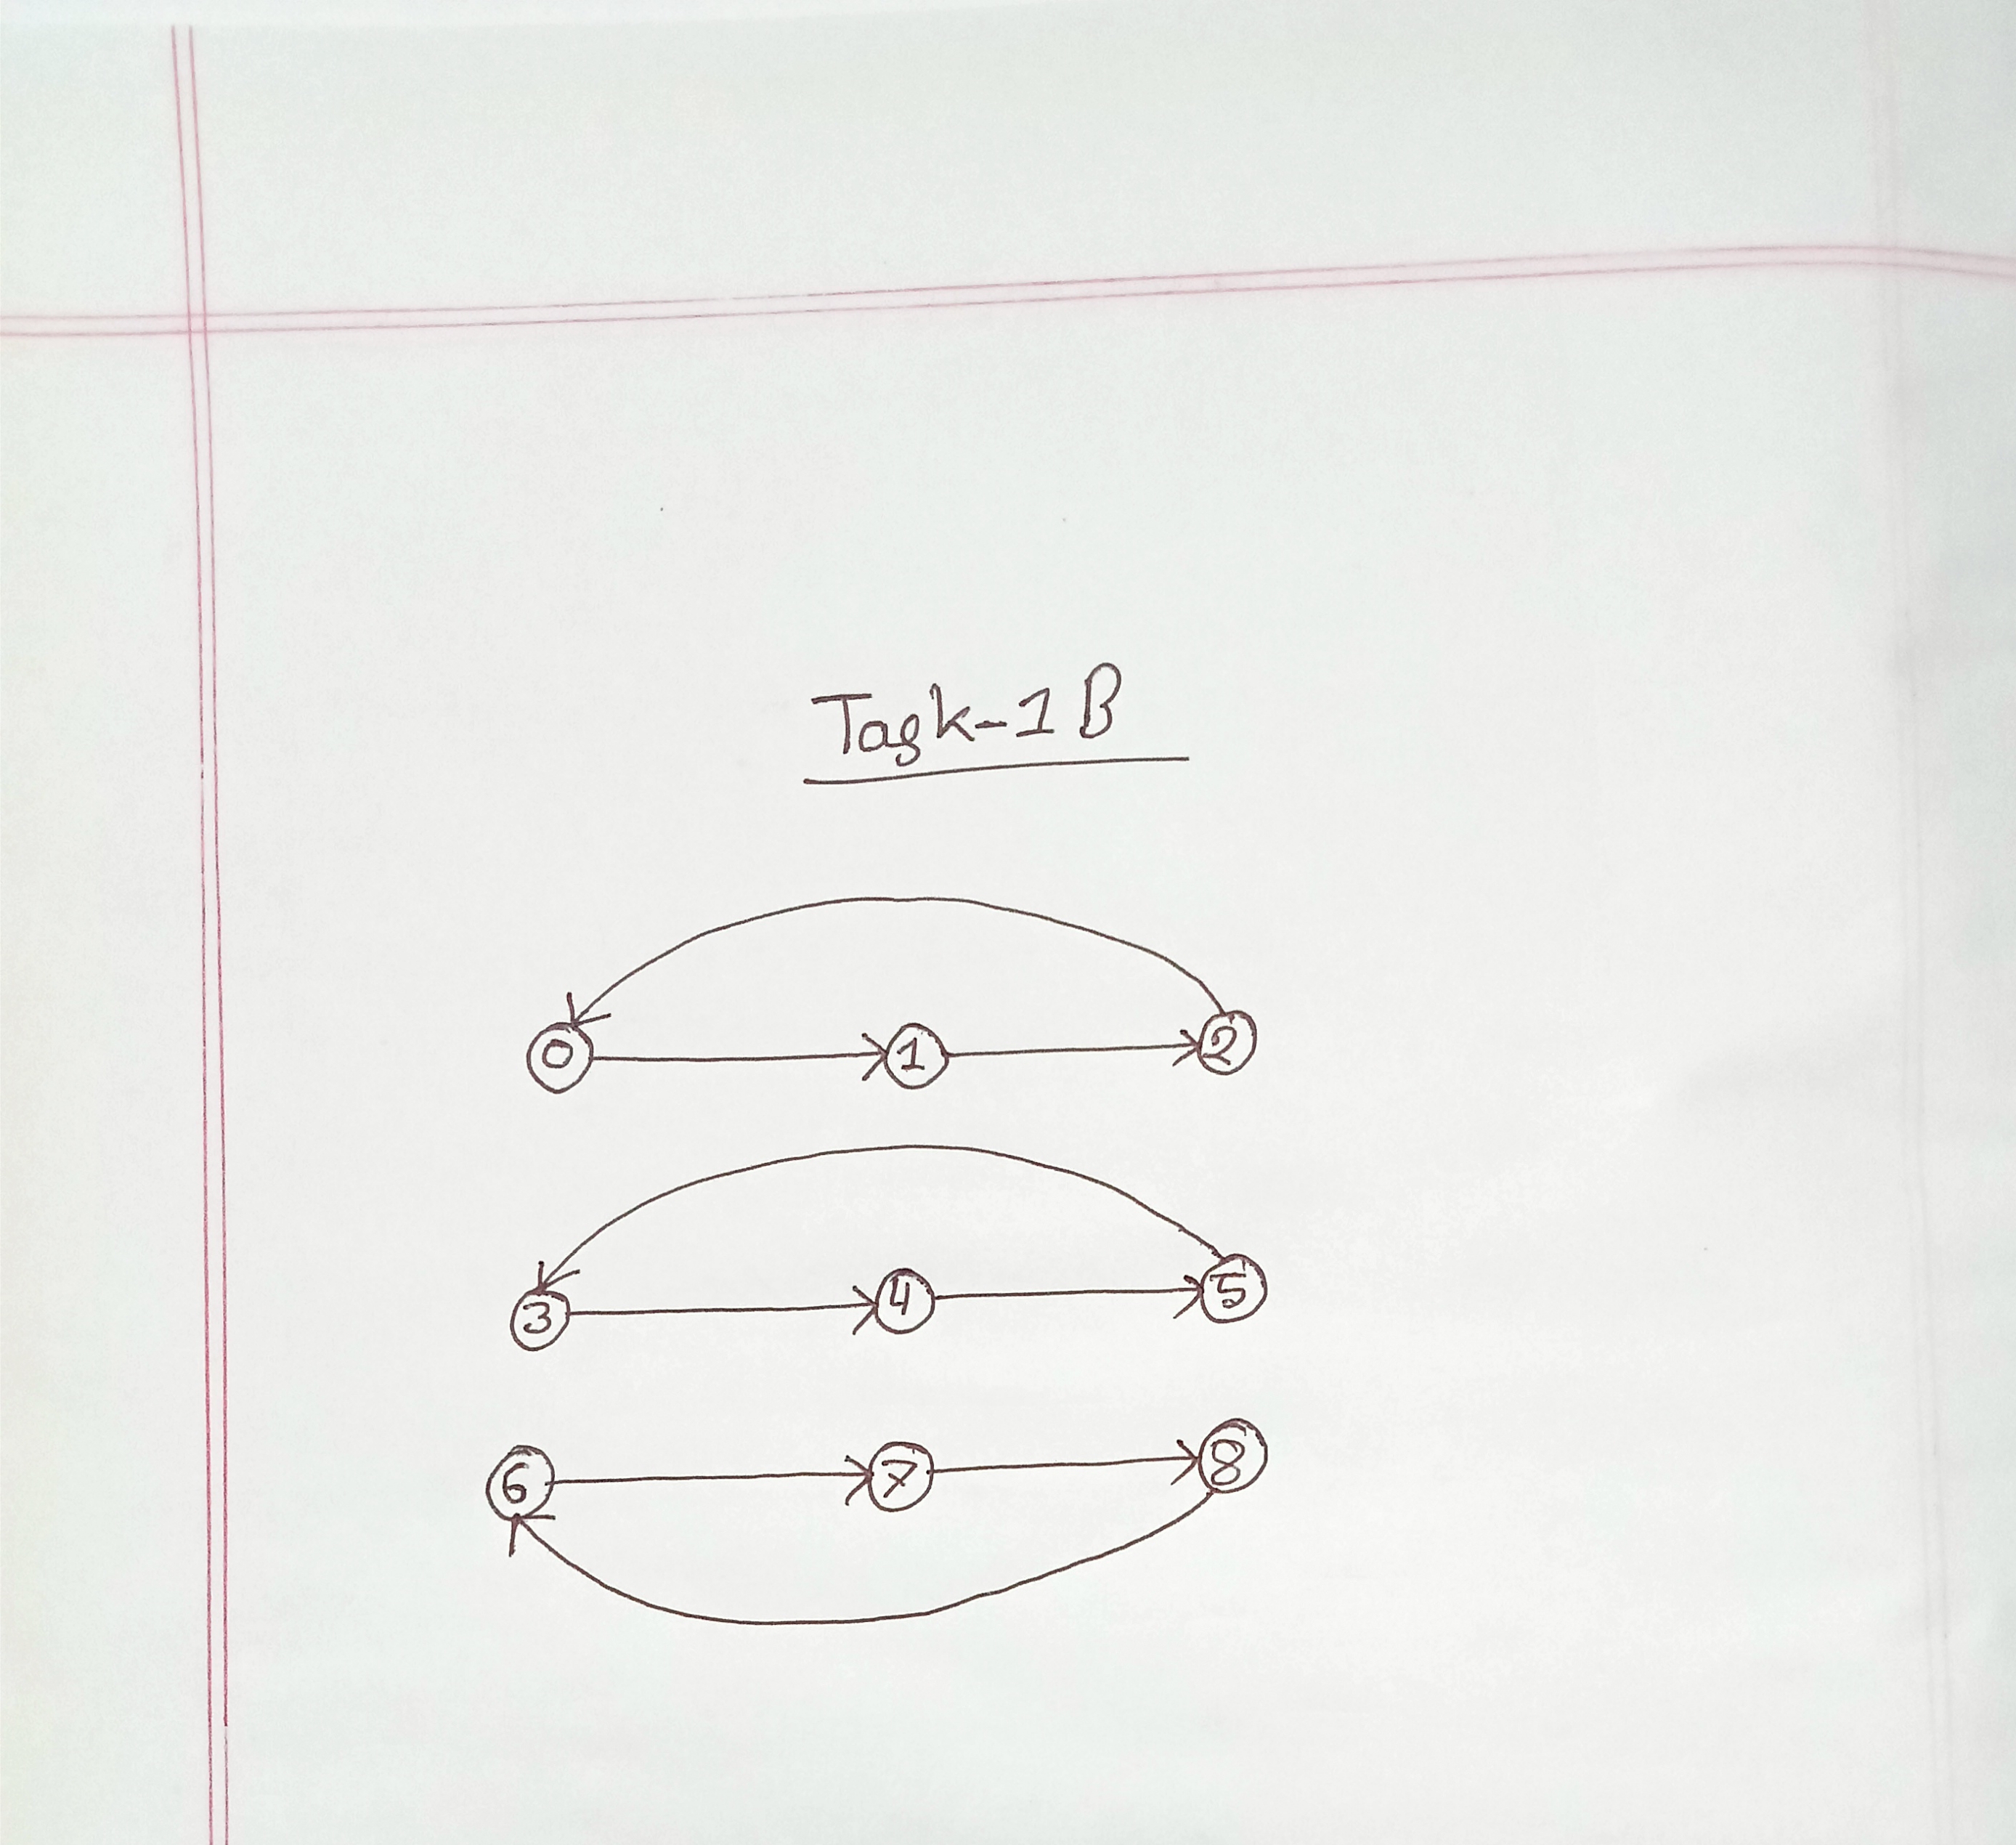 Task-1B
0 1 2
3 4 5
6 7 8